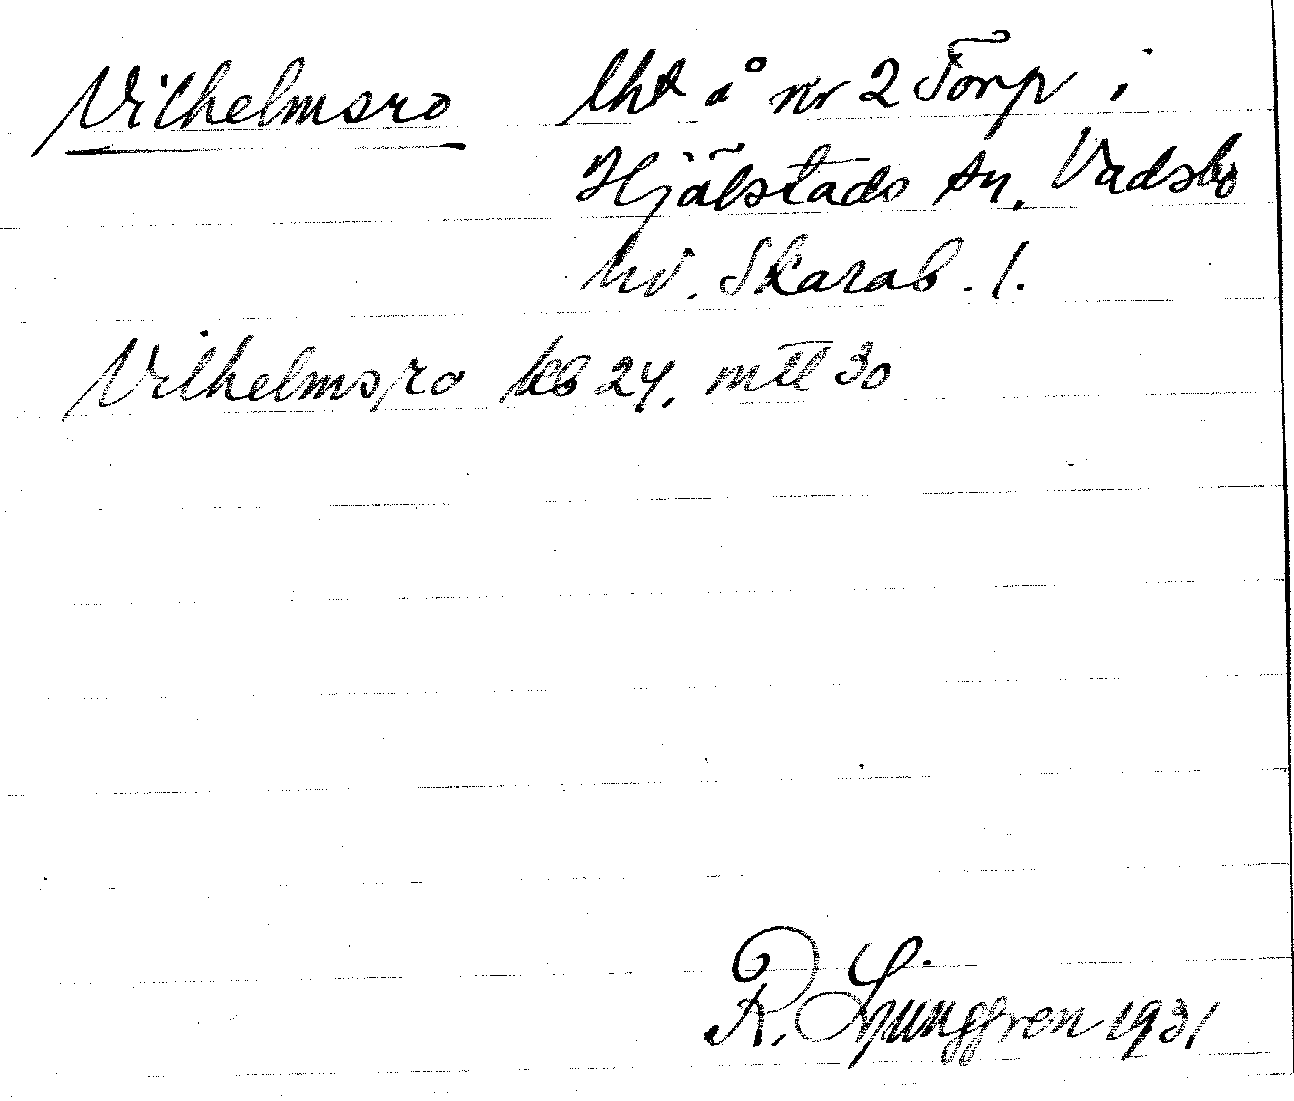 Vilhelmsro lht å nr 2 Torp i
Hjälstads sn. Vadsbo
hd. Skarab. l.
Vilhelmsro kb 24, mtl 30
R. Ljunggren 1931